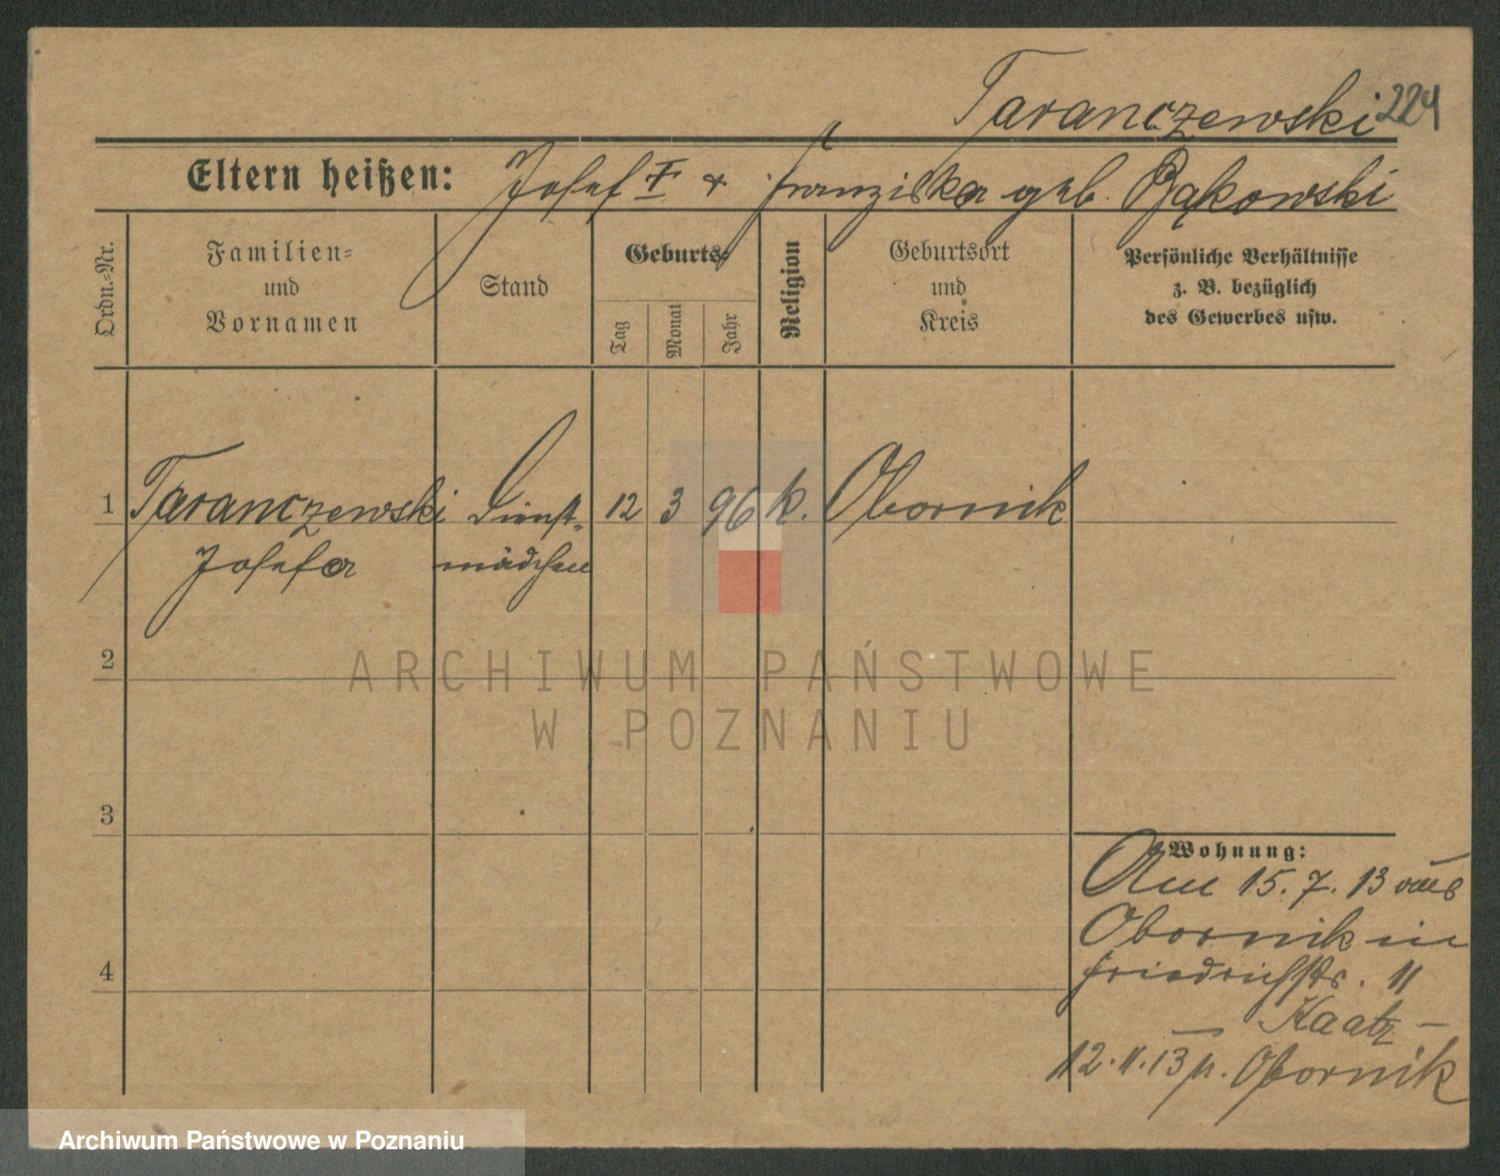 Taranczewski 224
Eltern heißen: Josef † + Franziska geb. Bąkowski
Ordn.-Nr.
Familien-
und
Vornamen
Stand
Geburts-
Tag
Monat
Jahr
Religion
Geburtsort
und
Kreis
Persönliche Verhältnisse
z. B. bezüglich
des Gewerbes usw.
1 Taranczewski Dienst- 12 3 96 k. Obornik
Josefa mädchen
2
ARCHIWUM PAŃSTWOWE
W POZNANIU
3
Wohnung:
Am 15.7.13 aus
Obornik in
Friedrichstr. 11
4
Kaatz –
12.11.13 n. Obornik
Archiwum Państwowe w Poznaniu